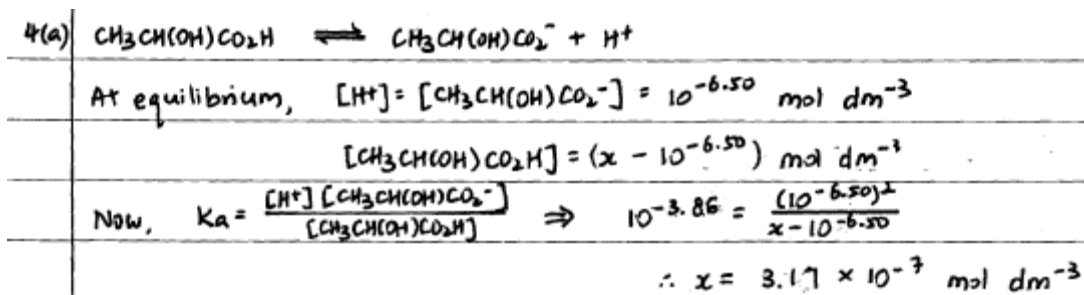 4(a) CH₃CH(OH)CO₂H ⇌ CH₃CH(OH)CO₂⁻ + H⁺
At equilibrium, [H⁺] = [CH₃CH(OH)CO₂⁻] = 10⁻⁶·⁵⁰ mol dm⁻³
[CH₃CH(OH)CO₂H] = (x − 10⁻⁶·⁵⁰) mol dm⁻³
Now, Ka = [H⁺][CH₃CH(OH)CO₂⁻] / [CH₃CH(OH)CO₂H] ⇒ 10⁻³·⁸⁶ = (10⁻⁶·⁵⁰)² / x − 10⁻⁶·⁵⁰
∴ x = 3.17 × 10⁻⁷ mol dm⁻³